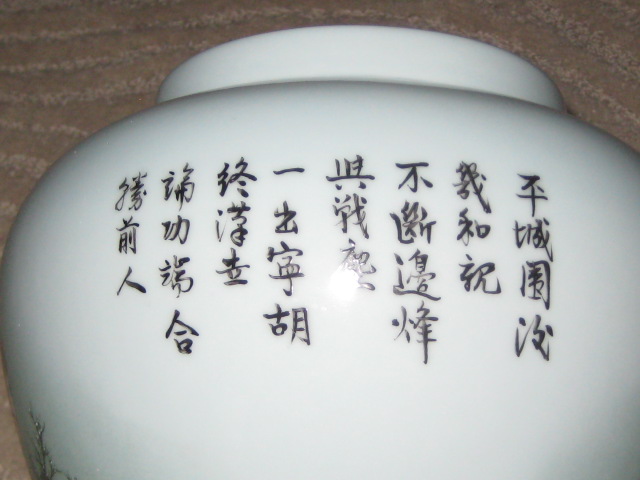 平城圍後
幾和親
不斷邊烽
與戰塵
一出寧胡
終漢世
論功端合
勝前人